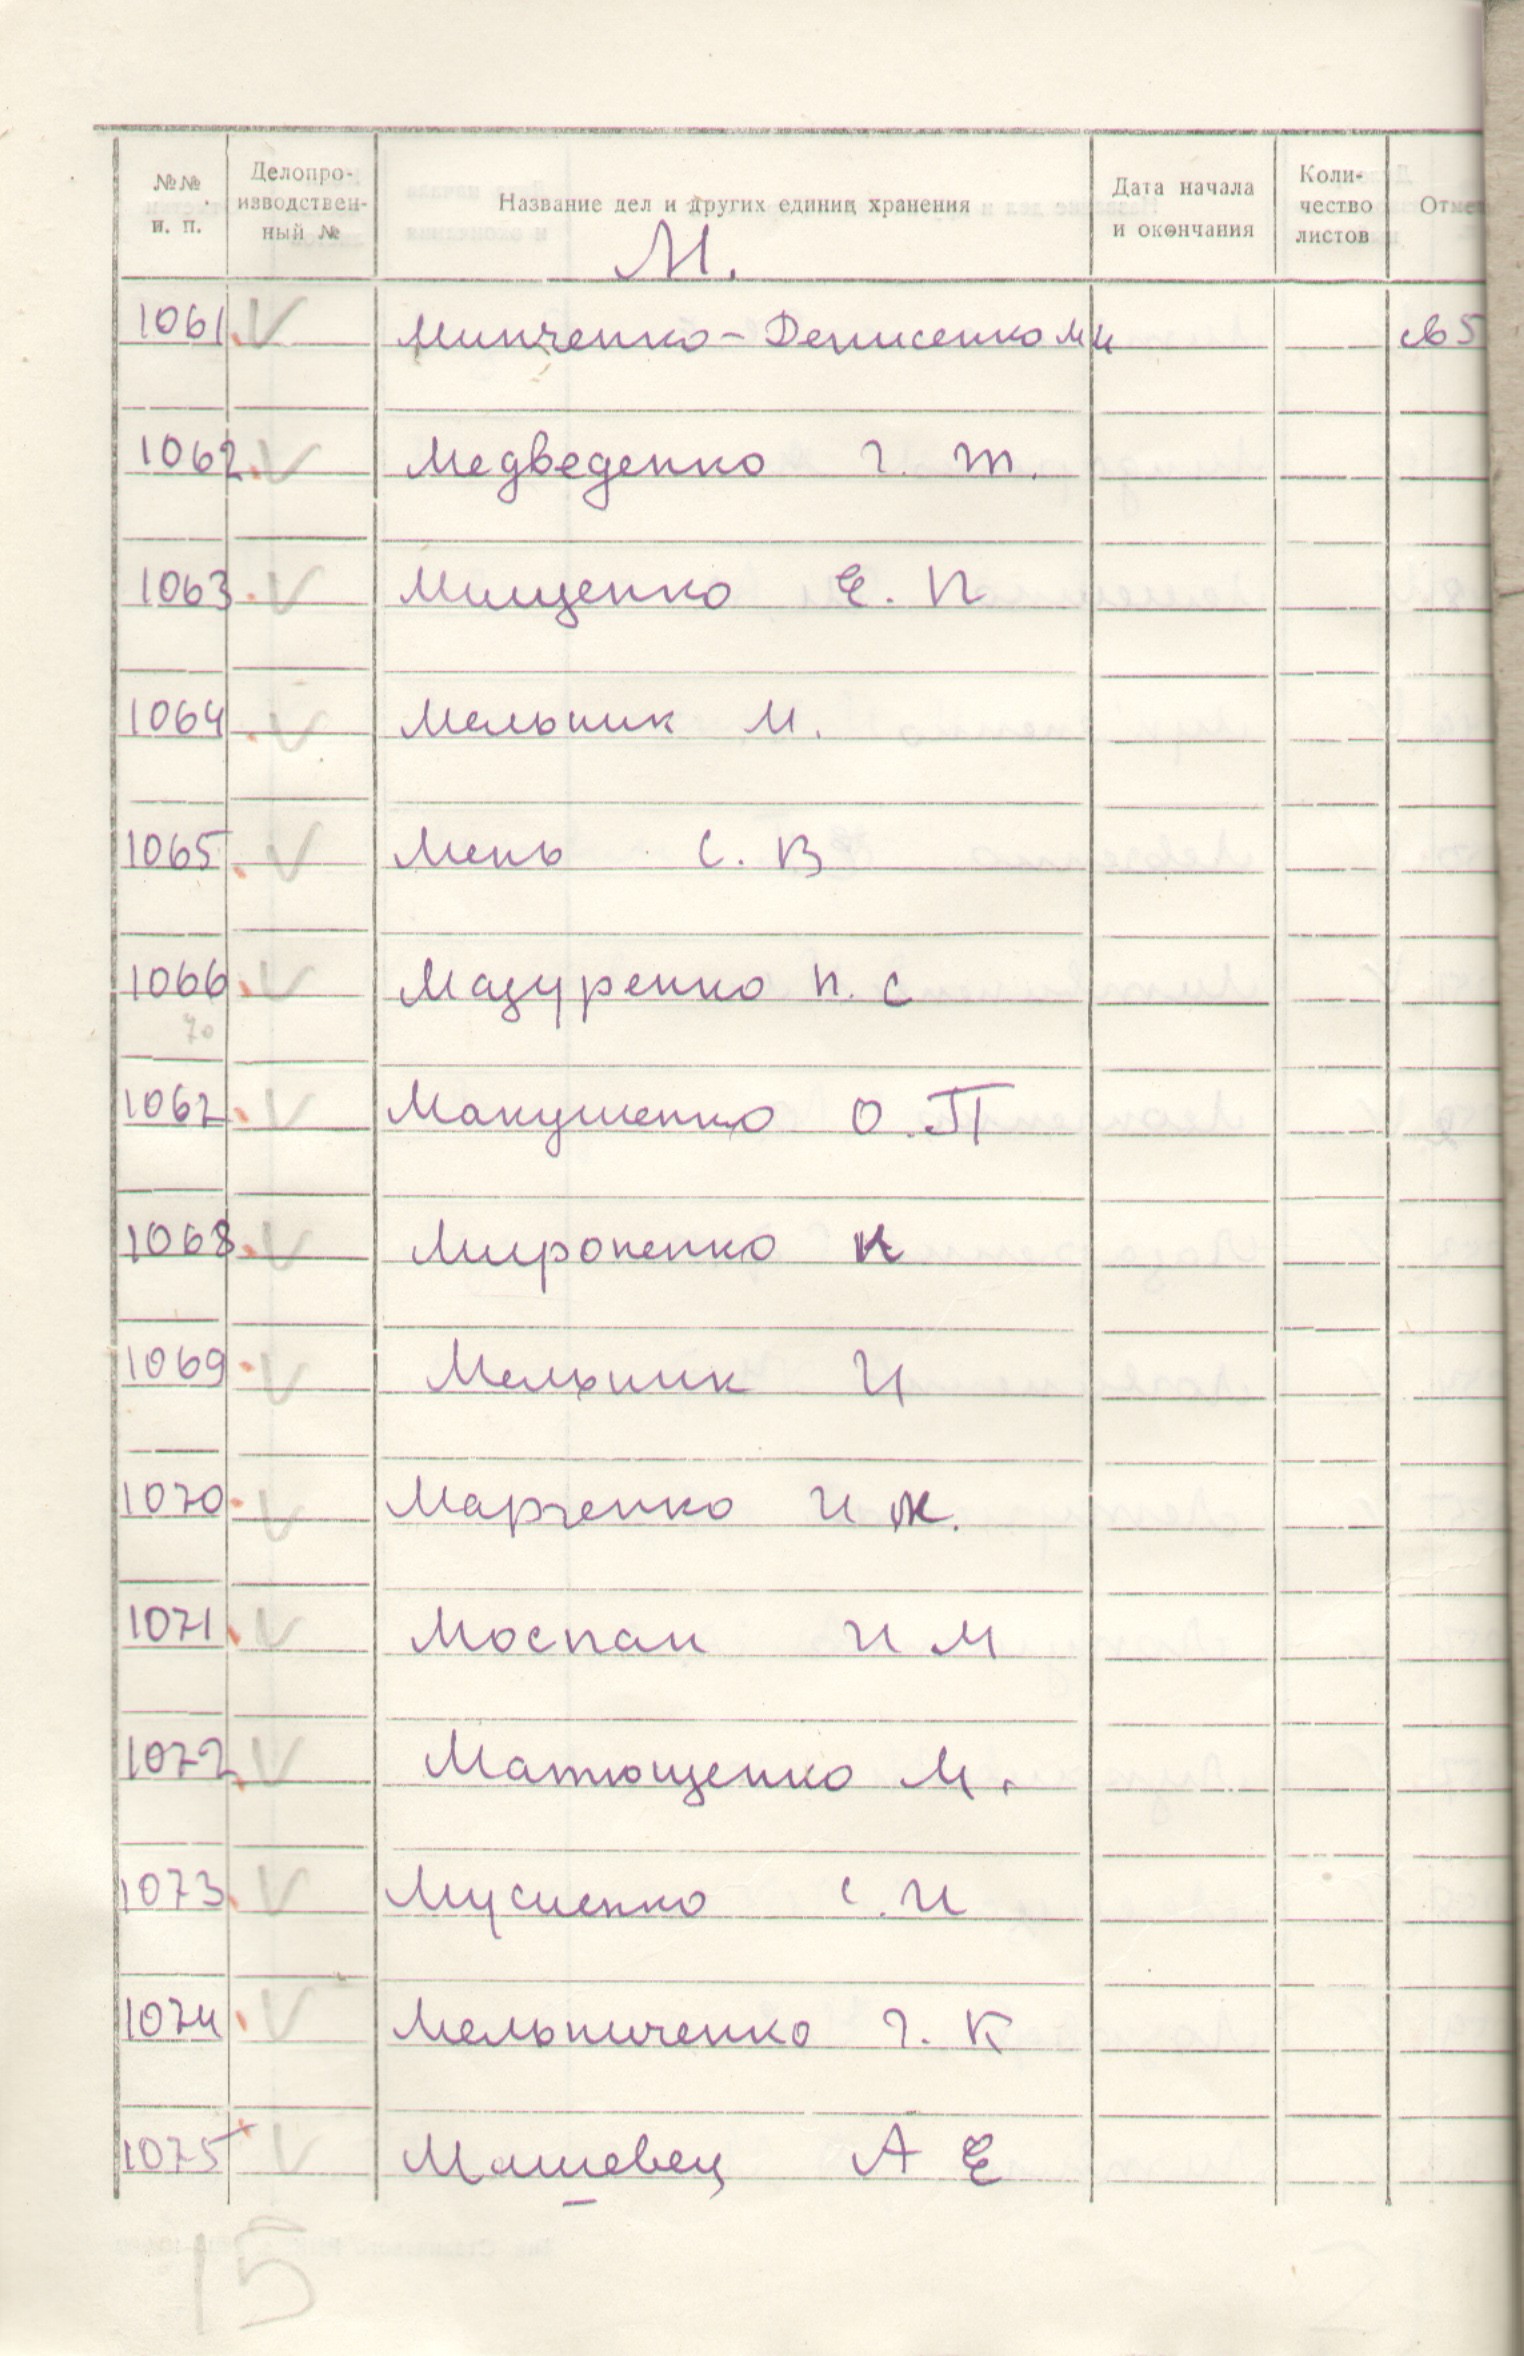 №№ п. п. Делопроизводственный № Название дел и других единиц хранения Дата начала и окончания Количество листов
М.
1061 V Минченко-Денисенко М И св 5
1062 V Медведенко Г. Т.
1063 V Мищенко Е. П
1064 V Мельник М.
1065 V Мень С. В
1066 V Мазуренко П. С
70
1067 V Макушенко О. П
1068 V Мироненко К
1069 V Мельник И
1070 V Марченко И Ж.
1071 V Моспан И М
1072 V Матющенко М.
1073 V Мусиенко С. И
1074 V Мельниченко Г. К
1075 V Машевец А Е
15